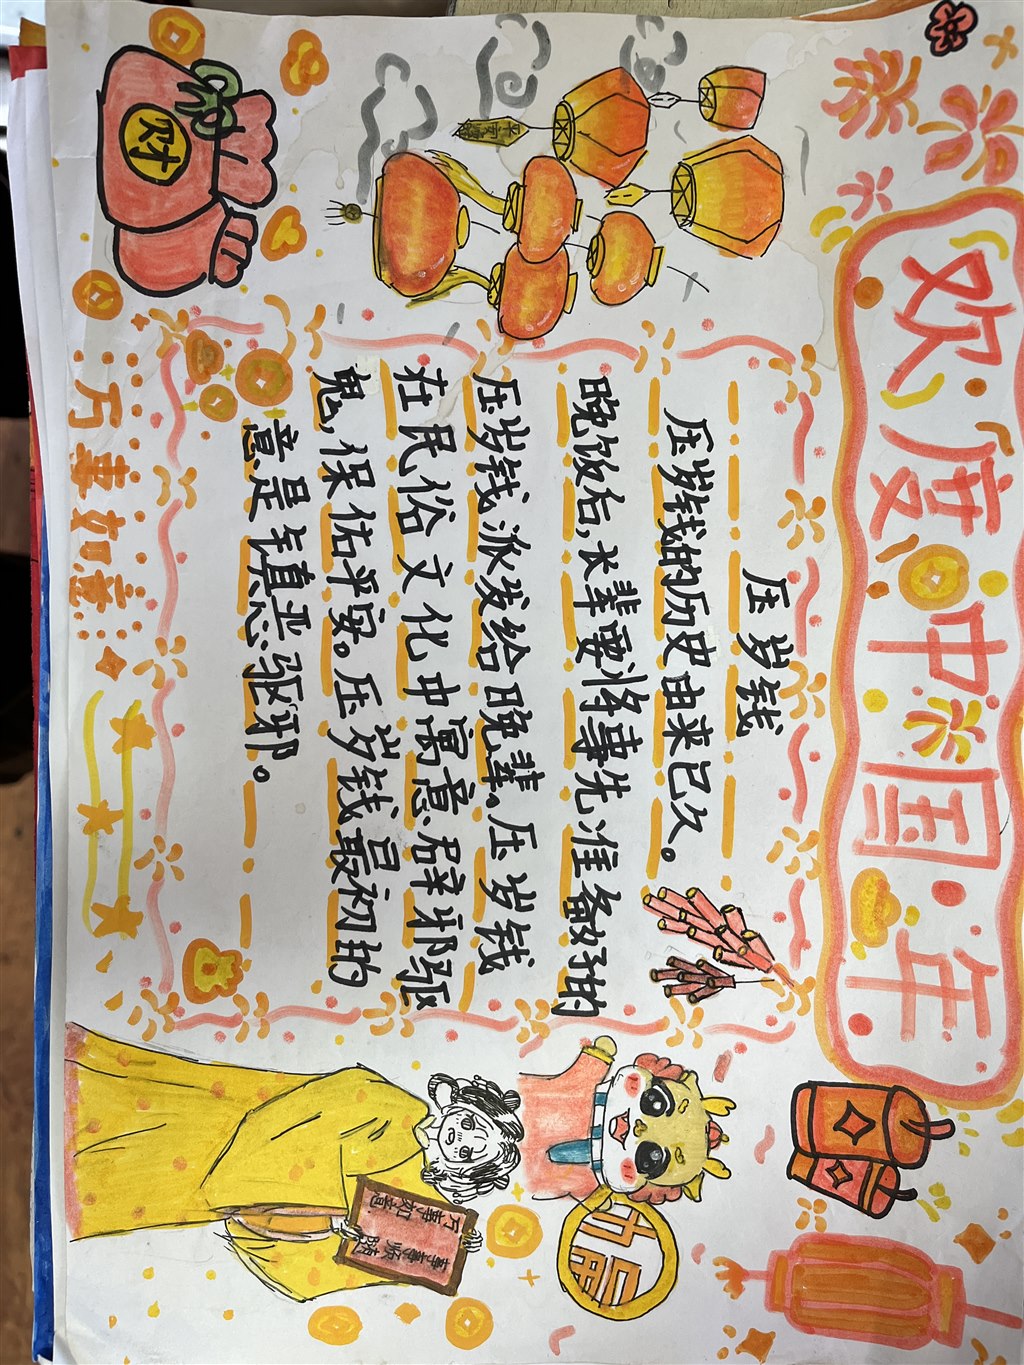 欢度中国年
财
压岁钱
压岁钱的历史由来已久。
晚饭后,长辈要将事先准备好的
压岁钱派发给晚辈。压岁钱
在民俗文化中寓意辟邪驱
鬼,保佑平安。压岁钱最初的
意是镇恶驱邪。
万事如意
万事如意
事事顺